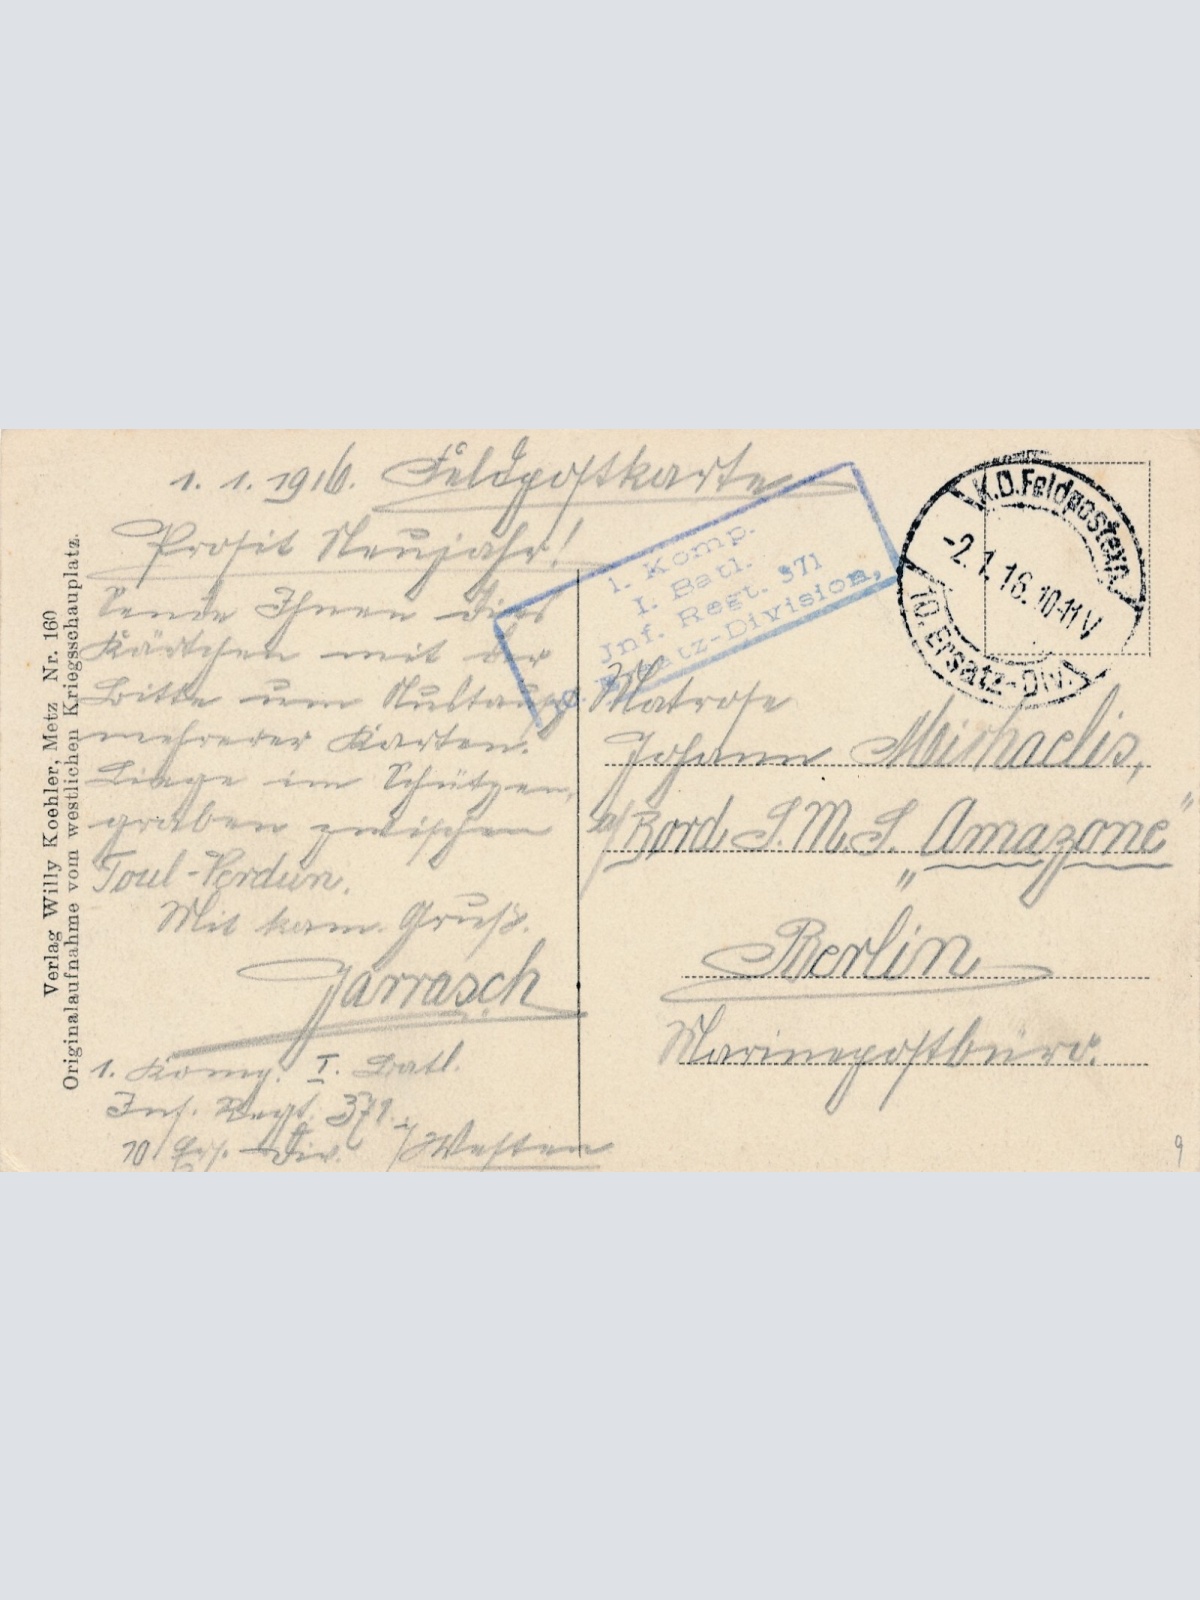 1. 1. 1916. Feldpostkarte
Prosit Neujahr!
Sende Ihnen dies
Kärtchen mit der
Bitte um
mehrerer Karten.
Liege im Schützen
graben zwischen
Toul-Verdun.
Mit kam. Gruß.
Jarrasch
1. Komp. I. Batl.
Inf. Regt. 371.
10 Ers. Div. i/Westen
Verlag Willy Koehler, Metz Nr. 160
Originalaufnahme vom westlichen Kriegsschauplatz.
1. Komp.
I. Batl.
Jnf. Regt. 371
10. Ersatz-Division,
K.D.Feldpostexp.
-2.1.16.10-11V
10. Ersatz-Div.
Matrose
Johann Michaelis,
a/Bord S.M.S. „Amazone"
Berlin
Marinepostbüro.
9